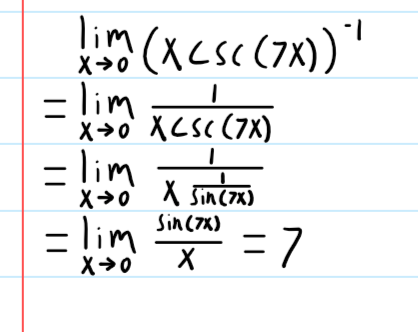 lim x→0 (x csc(7x))^-1
= lim x→0 1/(x csc(7x))
= lim x→0 1/(x 1/sin(7x))
= lim x→0 sin(7x)/x = 7